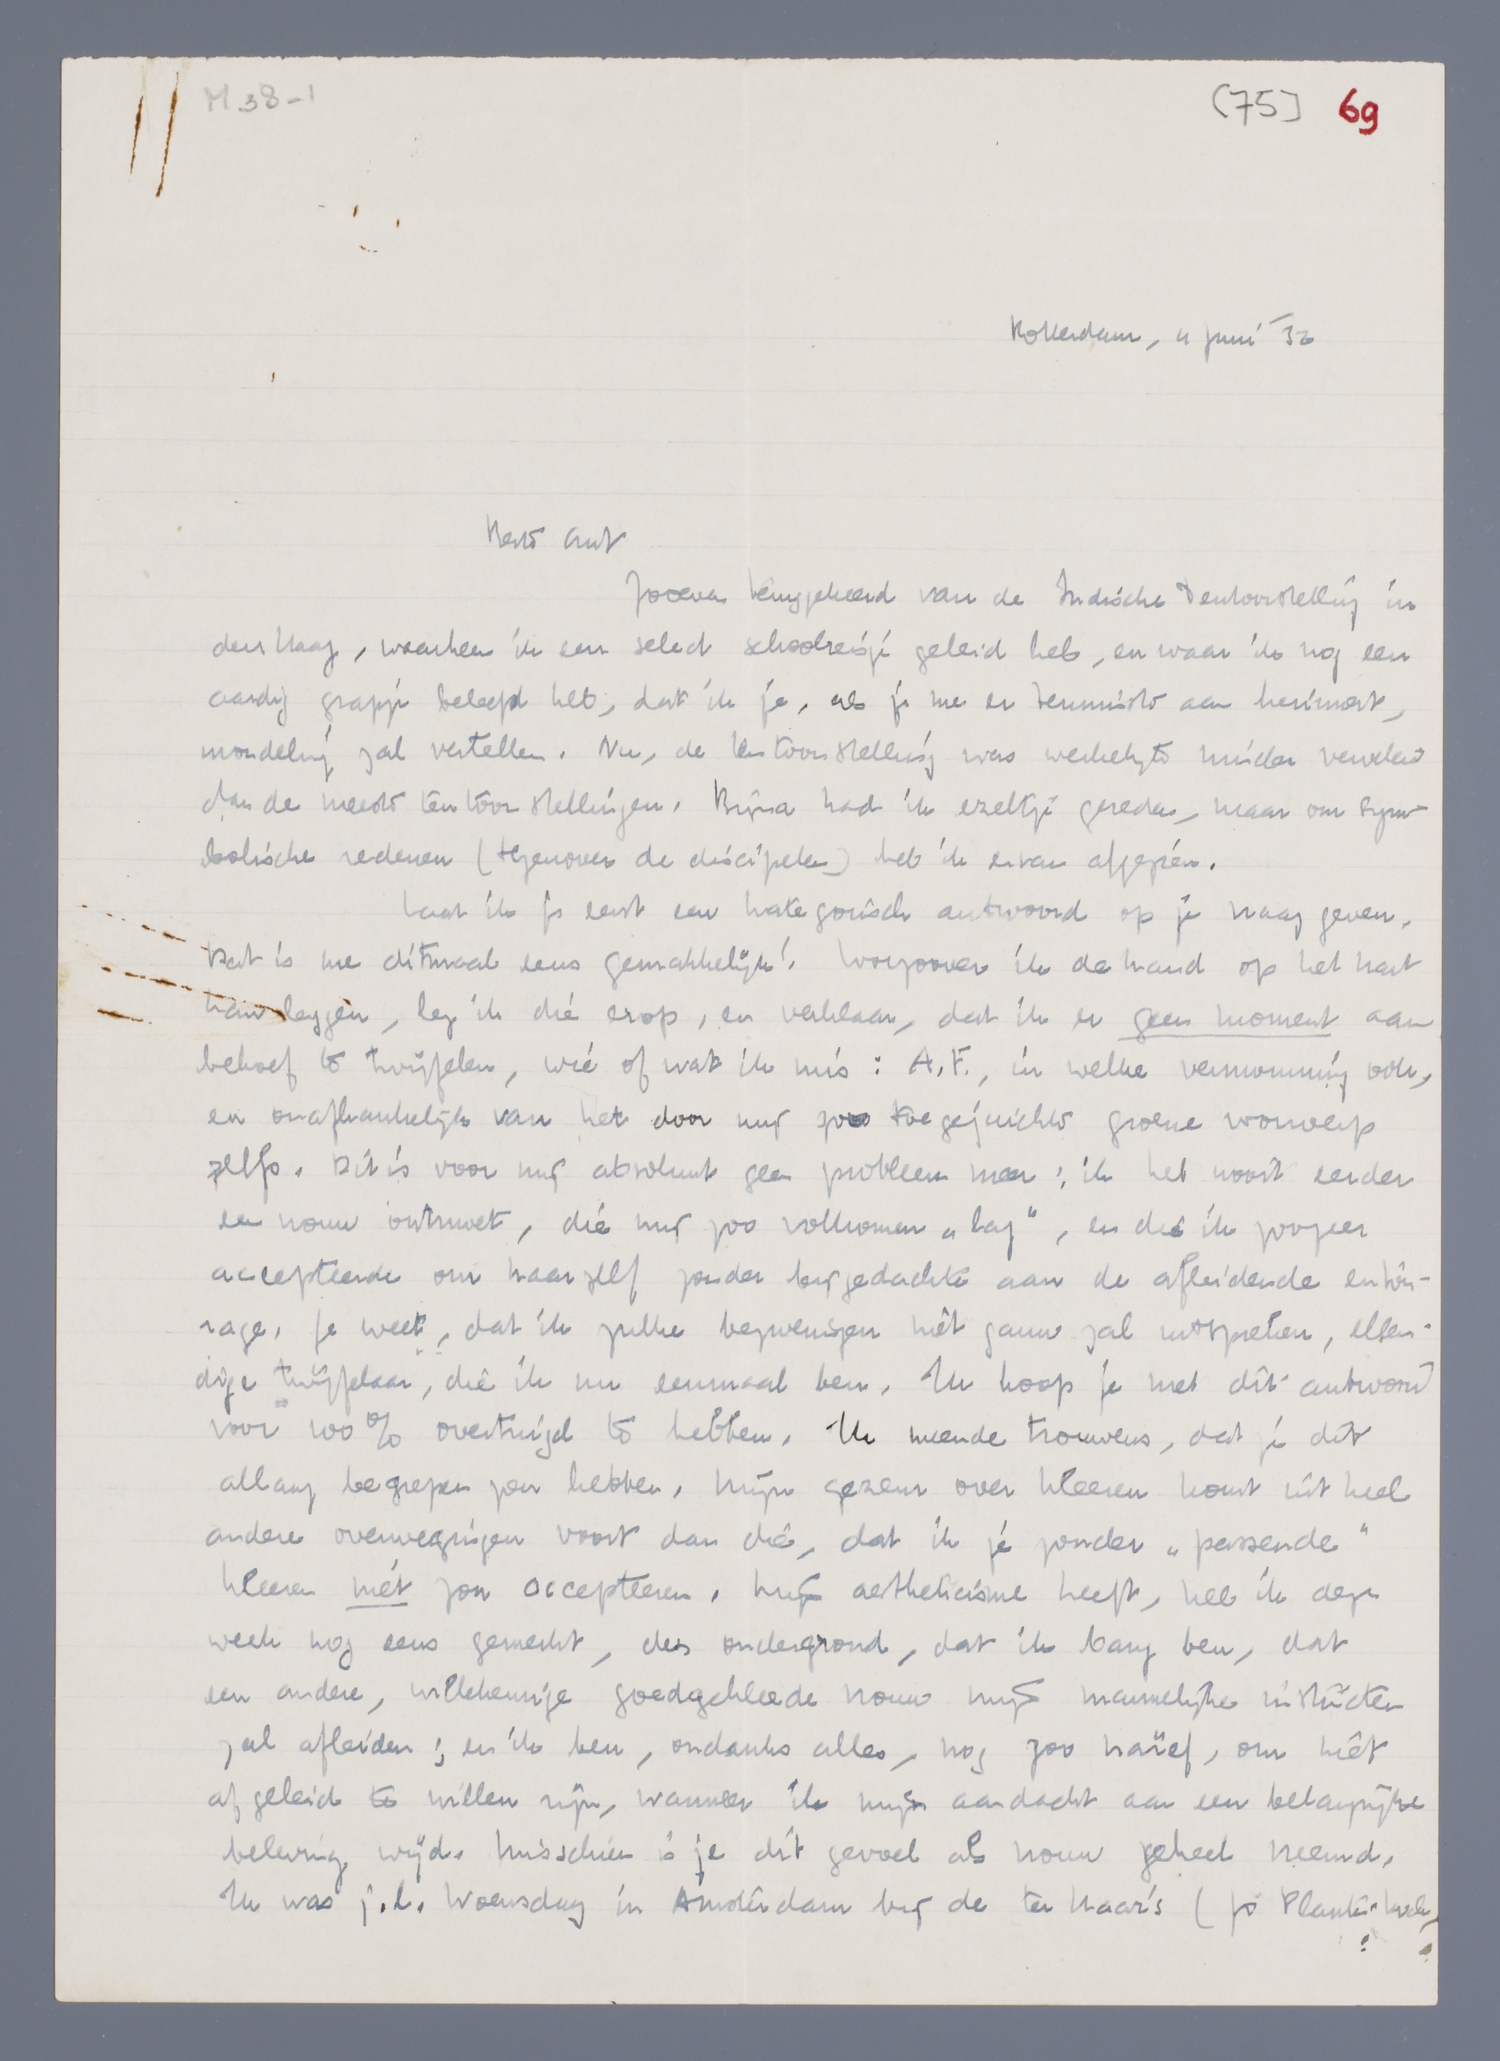 M 38-1
(75] 69
Rotterdam, 11 juni '32
Beste Ant
Zooeven teruggekeerd van de Indische Tentoonstelling in
den Haag, waarheen ik een select schoolreisje geleid heb, en waar ik nog een
aardig grapje beleefd heb, dat ik je, als je me er tenminste aan herinnert,
mondeling zal vertellen. Nu, de tentoonstelling was werkelijk minder vervelend
dan de meeste tentoonstellingen. Bijna had ik ezeltje gereden, maar om sym-
bolische redenen (tegenover de discipelen) heb ik ervan afgezien.
Laat ik je eerst een kategorisch antwoord op je vraag geven.
Dat is me ditmaal eens gemakkelijk! Voorzoover ik de hand op het hart
kan leggen, leg ik die erop, en verklaar, dat ik er geen moment aan
behoef te twijfelen, wie of wat ik mis: A.F., in welke vermomming ook,
en onafhankelijk van het door mij zoo toegejuichte groene voorwerp
zelfs. Dit is voor mij absoluut geen probleem meer; ik heb nooit eerder
een vrouw ontmoet, die mij zoo volkomen „lag", en die ik zoozeer
accepteerde om haarzelf zonder bijgedachte aan de afleidende entou-
rage. Je weet, dat ik zulke beweringen niet gauw zal uitspreken, ellen-
dige twijfelaar, die ik nu eenmaal ben. Ik hoop je met dit antwoord
voor 100% overtuigd te hebben. Ik meende trouwens, dat je dit
allang begrepen zou hebben. Mijn gezeur over kleeren komt uit heel
andere overwegingen voort dan die, dat ik je zonder „passende"
kleeren niet zou accepteeren. Mijn aestheticisme heeft, heb ik deze
week nog eens gemerkt, den ondergrond, dat ik bang ben, dat
een andere, willekeurige goedgekleede vrouw mijn mannelijke instincten
zal afleiden; en ik ben, ondanks alles, nog zoo naïef, om niet
afgeleid te willen zijn, wanneer ik mijn aandacht aan een belangrijke
beleving wijd. Misschien is je dit gevoel als vrouw geheel vreemd.
Ik was j.l. Woensdag in Amsterdam bij de ter Haar's (Jo Planten-